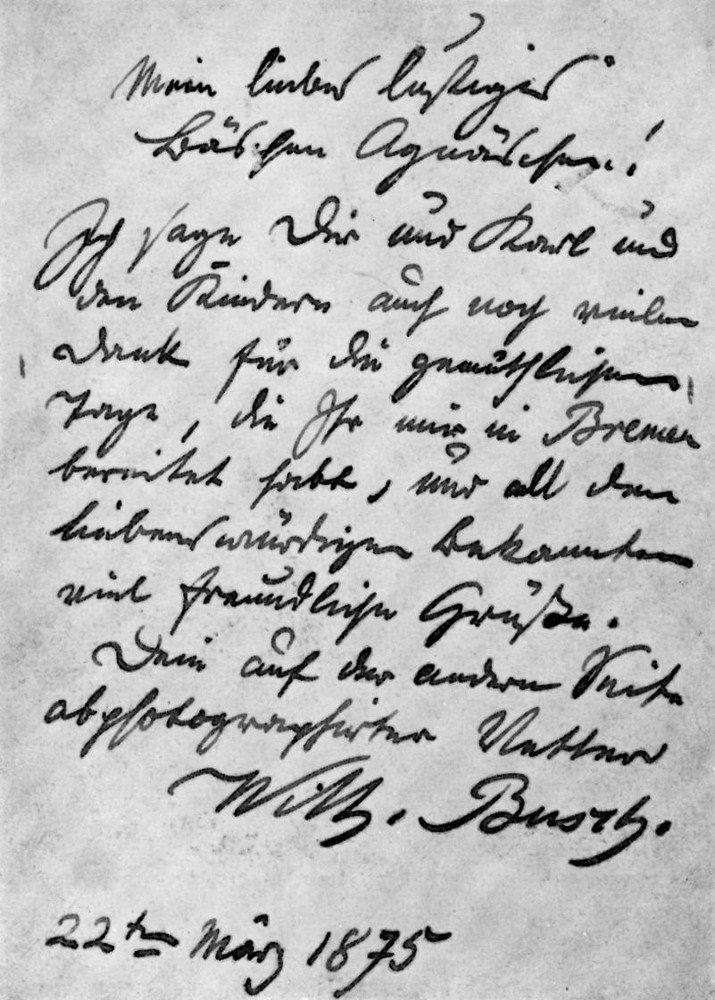 Mein liebes lustiges
Bäschen Agnäschen!
Ich sage Dir und Karl und
den Kindern auch noch vielen
Dank für die gemüthlichen
Tage, die Ihr mir in Bremen
bereitet habt, und all den
liebenswürdigen Bekannten
viel freundliche Grüße.
Dein auf der andern Seite
abphotographirter Vetter
Wilh. Busch.
22ten März 1875